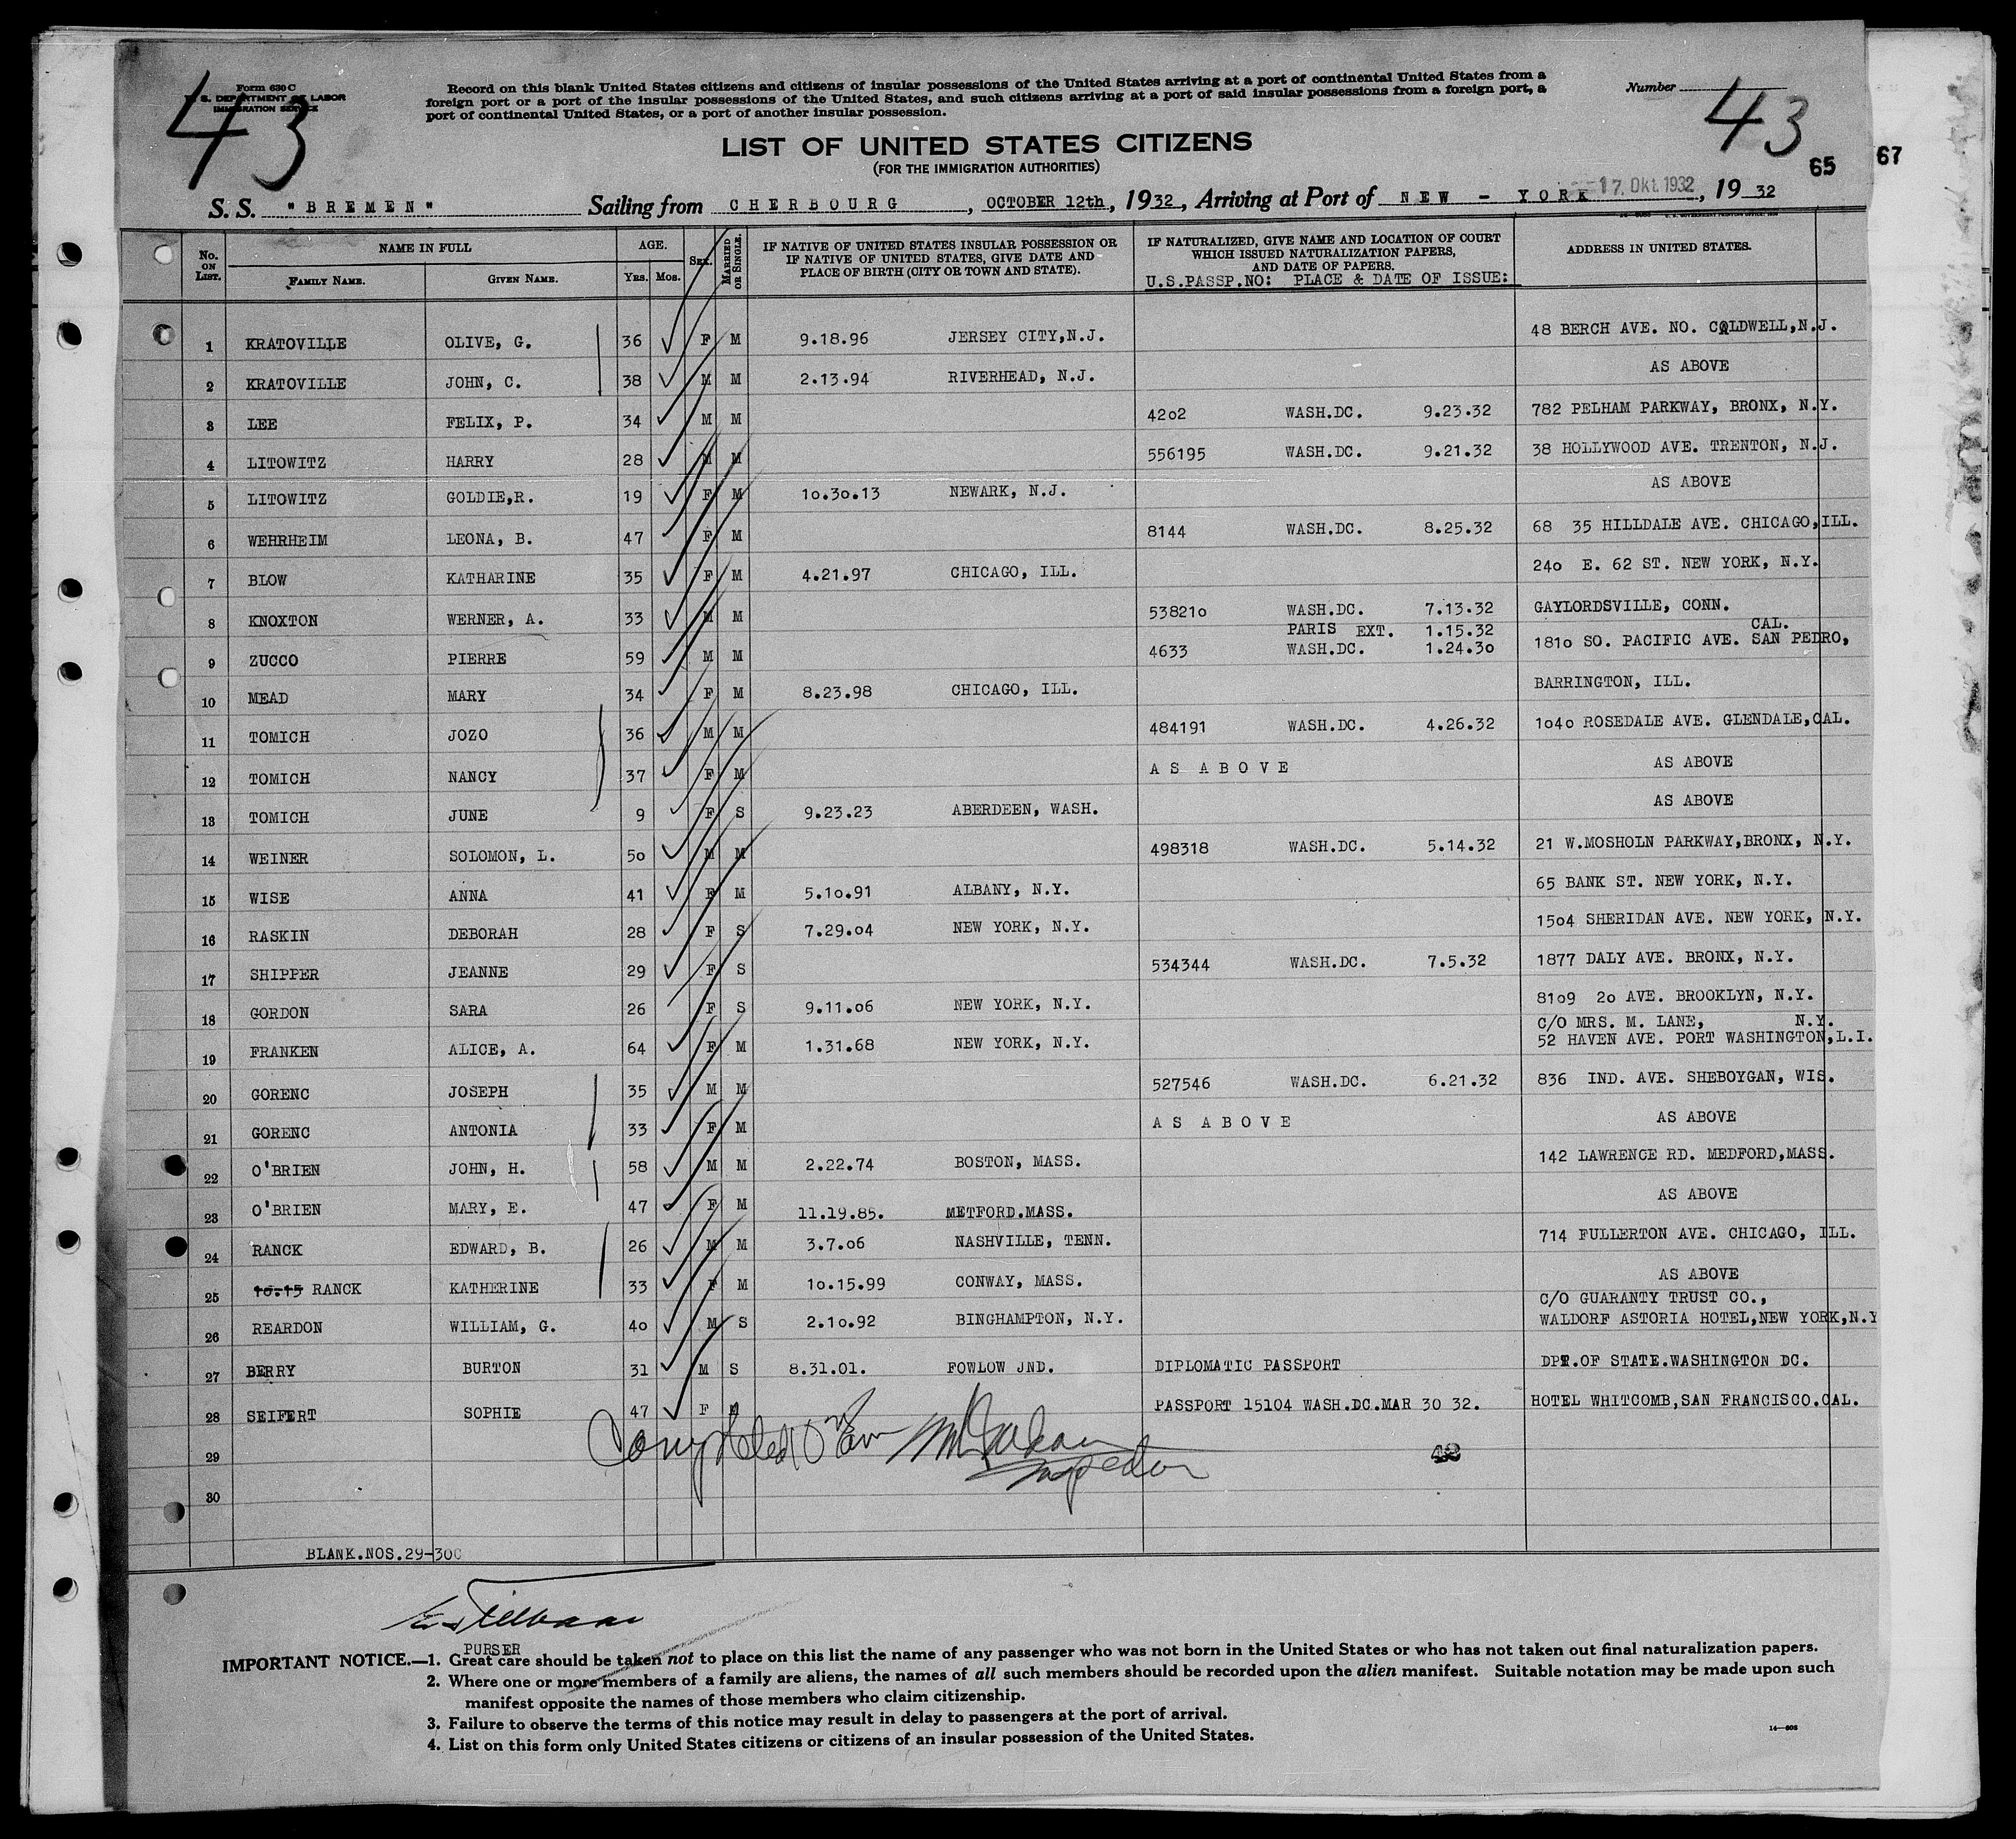 43
Form 630 C
U. S. DEPARTMENT OF LABOR
IMMIGRATION SERVICE
Record on this blank United States citizens and citizens of insular possessions of the United States arriving at a port of continental United States from a
foreign port or a port of the insular possessions of the United States, and such citizens arriving at a port of said insular possessions from a foreign port, a
port of continental United States, or a port of another insular possession.
Number
43
65
67
LIST OF UNITED STATES CITIZENS
(FOR THE IMMIGRATION AUTHORITIES)
S. S. "BREMEN" Sailing from CHERBOURG, OCTOBER 12th, 1932, Arriving at Port of NEW - YORK 17. Okt. 1932, 1932
No. ON LIST. NAME IN FULL AGE. SEX. MARRIED OR SINGLE. IF NATIVE OF UNITED STATES INSULAR POSSESSION OR IF NATIVE OF UNITED STATES, GIVE DATE AND PLACE OF BIRTH (CITY OR TOWN AND STATE). IF NATURALIZED, GIVE NAME AND LOCATION OF COURT WHICH ISSUED NATURALIZATION PAPERS, AND DATE OF PAPERS. ADDRESS IN UNITED STATES.
FAMILY NAME. GIVEN NAME. YRS. MOS. U.S.PASSP.NO: PLACE & DATE OF ISSUE:
1 KRATOVILLE OLIVE, G. 36 F M 9.18.96 JERSEY CITY,N.J. 48 BERCH AVE. NO. CALDWELL,N.J.
2 KRATOVILLE JOHN, C. 38 M M 2.13.94 RIVERHEAD, N.J. AS ABOVE
3 LEE FELIX, P. 34 M M 4202 WASH.DC. 9.23.32 782 PELHAM PARKWAY, BRONX, N.Y.
4 LITOWITZ HARRY 28 M M 556195 WASH.DC. 9.21.32 38 HOLLYWOOD AVE. TRENTON, N.J.
5 LITOWITZ GOLDIE,R. 19 F M 10.30.13 NEWARK, N.J. AS ABOVE
6 WEHRHEIM LEONA, B. 47 F M 8144 WASH.DC. 8.25.32 68 35 HILLDALE AVE. CHICAGO,ILL.
7 BLOW KATHARINE 35 F M 4.21.97 CHICAGO, ILL. 240 E. 62 ST. NEW YORK, N.Y.
8 KNOXTON WERNER, A. 33 M M 538210 WASH.DC. 7.13.32 GAYLORDSVILLE, CONN.
PARIS EXT. 1.15.32 CAL.
9 ZUCCO PIERRE 59 M M 4633 WASH.DC. 1.24.30 1810 SO. PACIFIC AVE. SAN PEDRO,
10 MEAD MARY 34 F M 8.23.98 CHICAGO, ILL. BARRINGTON, ILL.
11 TOMICH JOZO 36 M M 484191 WASH.DC. 4.26.32 1040 ROSEDALE AVE. GLENDALE,CAL.
12 TOMICH NANCY 37 F M AS ABOVE AS ABOVE
13 TOMICH JUNE 9 F S 9.23.23 ABERDEEN, WASH. AS ABOVE
14 WEINER SOLOMON, L. 50 M M 498318 WASH.DC. 5.14.32 21 W.MOSHOLN PARKWAY,BRONX, N.Y.
15 WISE ANNA 41 F M 5.10.91 ALBANY, N.Y. 65 BANK ST. NEW YORK, N.Y.
16 RASKIN DEBORAH 28 F S 7.29.04 NEW YORK, N.Y. 1504 SHERIDAN AVE. NEW YORK, N.Y.
17 SHIPPER JEANNE 29 F S 534344 WASH.DC. 7.5.32 1877 DALY AVE. BRONX, N.Y.
18 GORDON SARA 26 F S 9.11.06 NEW YORK, N.Y. 8109 20 AVE. BROOKLYN, N.Y.
C/O MRS. M. LANE, N.Y.
19 FRANKEN ALICE, A. 64 F M 1.31.68 NEW YORK, N.Y. 52 HAVEN AVE. PORT WASHINGTON,L.I.
20 GORENC JOSEPH 35 M M 527546 WASH.DC. 6.21.32 836 IND. AVE. SHEBOYGAN, WIS.
21 GORENC ANTONIA 33 F M AS ABOVE AS ABOVE
22 O'BRIEN JOHN, H. 58 M M 2.22.74 BOSTON, MASS. 142 LAWRENCE RD. MEDFORD,MASS.
23 O'BRIEN MARY, E. 47 F M 11.19.85. METFORD.MASS. AS ABOVE
24 RANCK EDWARD, B. 26 M M 3.7.06 NASHVILLE, TENN. 714 FULLERTON AVE. CHICAGO, ILL.
25 10.15 RANCK KATHERINE 33 F M 10.15.99 CONWAY, MASS. AS ABOVE
C/O GUARANTY TRUST CO.,
26 REARDON WILLIAM, G. 40 M S 2.10.92 BINGHAMPTON, N.Y. WALDORF ASTORIA HOTEL,NEW YORK,N.Y
27 BERRY BURTON 31 M S 8.31.01. FOWLOW JND. DIPLOMATIC PASSPORT DPT.OF STATE.WASHINGTON DC.
28 SEIFERT SOPHIE 47 F M PASSPORT 15104 WASH.DC.MAR 30 32. HOTEL WHITCOMB,SAN FRANCISCO.CAL.
29 Completed Inspector
30
BLANK.NOS.29-30
PURSER
IMPORTANT NOTICE.—1. Great care should be taken not to place on this list the name of any passenger who was not born in the United States or who has not taken out final naturalization papers.
2. Where one or more members of a family are aliens, the names of all such members should be recorded upon the alien manifest. Suitable notation may be made upon such
manifest opposite the names of those members who claim citizenship.
3. Failure to observe the terms of this notice may result in delay to passengers at the port of arrival.
4. List on this form only United States citizens or citizens of an insular possession of the United States.